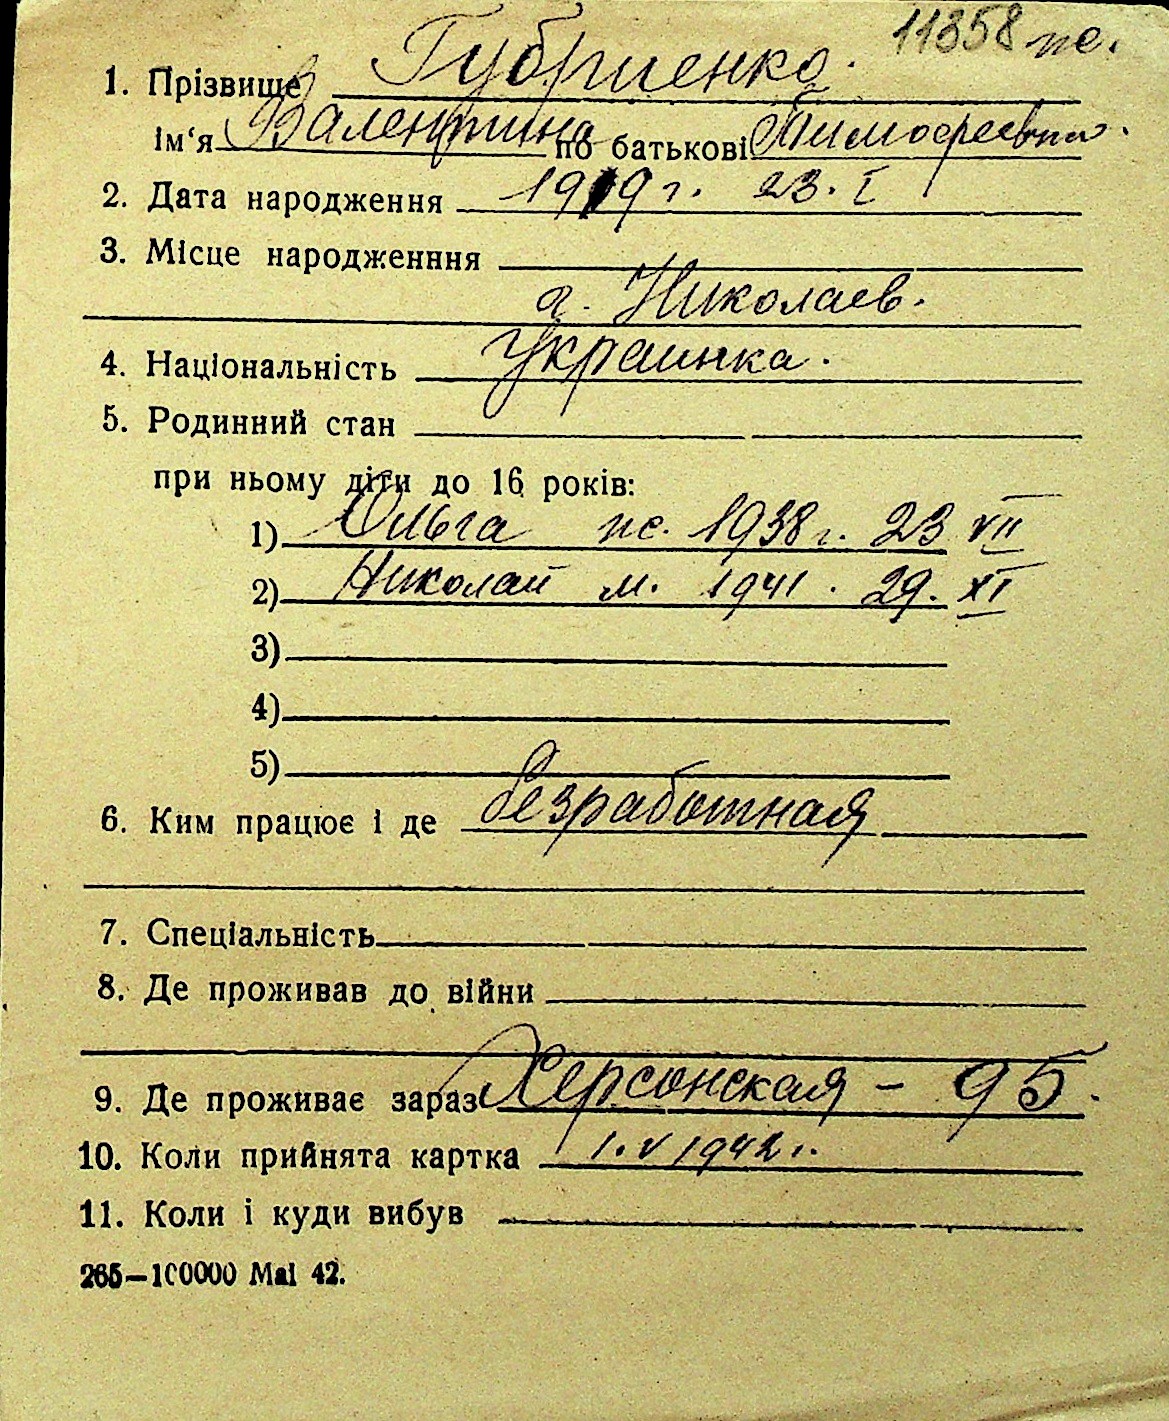 11358 ж.
1. Прізвище Губриенко.
Ім‘я Валентина по батькові Тимофеевна.
2. Дата народження 1919 г. 23. I
3. Місце народженння
г. Николаев.
4. Національність Украинка.
5. Родинний стан
при ньому діти до 16 років:
1) Ольга ж. 1938 г. 23 VII
2) Николай м. 1941. 29. XI
3)
4)
5)
6. Ким працює і де безработная
7. Спеціальність
8. Де проживав до війни
9. Де проживає зараз Херсонская – 95.
10. Коли прийнята картка 1. V 1942 г.
11. Коли і куди вибув
265—100000 Маі 42.